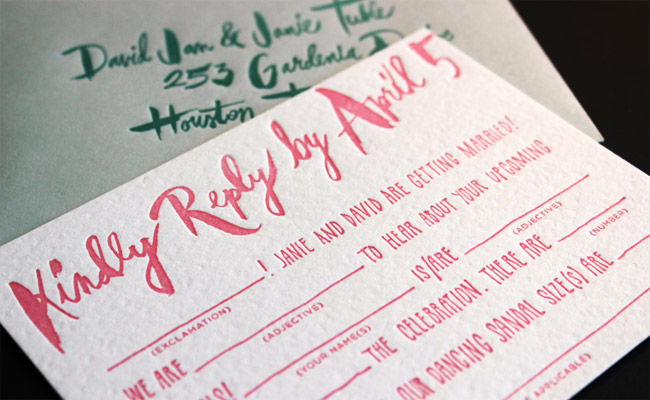 David & Janie
253 Gardenia
Houston
Kindly Reply by April 5
! JANIE AND DAVID ARE GETTING MARRIED!
(EXCLAMATION)
WE ARE TO HEAR ABOUT YOUR UPCOMING
(ADJECTIVE)
IS/ARE
(YOUR NAME(S)) (ADJECTIVE)
THE CELEBRATION. THERE ARE
(NUMBER)
OUR DANCING SANDAL SIZE(S) ARE
APPLICABLE)